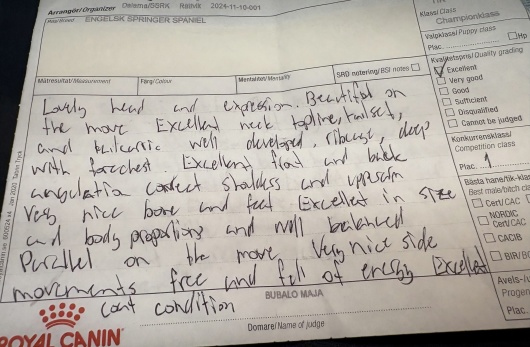 Arrangör/Organizer Dalarna/SSRK Rättvik 2024-11-10-001
ENGELSK SPRINGER SPANIEL
Klass/Class
Championklass
Valpklass/Puppy class
Plac. HP
Kvalitetspris/Quality grading
Excellent
Very good
Good
Sufficient
Disqualified
Cannot be judged
Konkurrensklass/
Competition class
Plac. 1
Bästa hane/tik-klass
Best male/bitch
Cert/CAC
NORDIC
Cert/CAC
CACIB
BIR/BO
Avels-/
Progen
Plac.
Mätresultat/Measurement Färg/Colour Mentalitet/Mentality SRD notering/BSI notes
Lovely head and expression. Beautiful on
the move Excellent neck topline, tailset,
and well developed, ribcage, deep
with forechest. Excellent front and back
angulation correct shoulders and upperarm
Very nice bone and feet Excellent in size
and body proportions and well balanced
Parallel on the move Very nice side
movements free and full of energy Excellent
coat condition
BUBALO MAJA
Domare/Name of judge
ROYAL CANIN